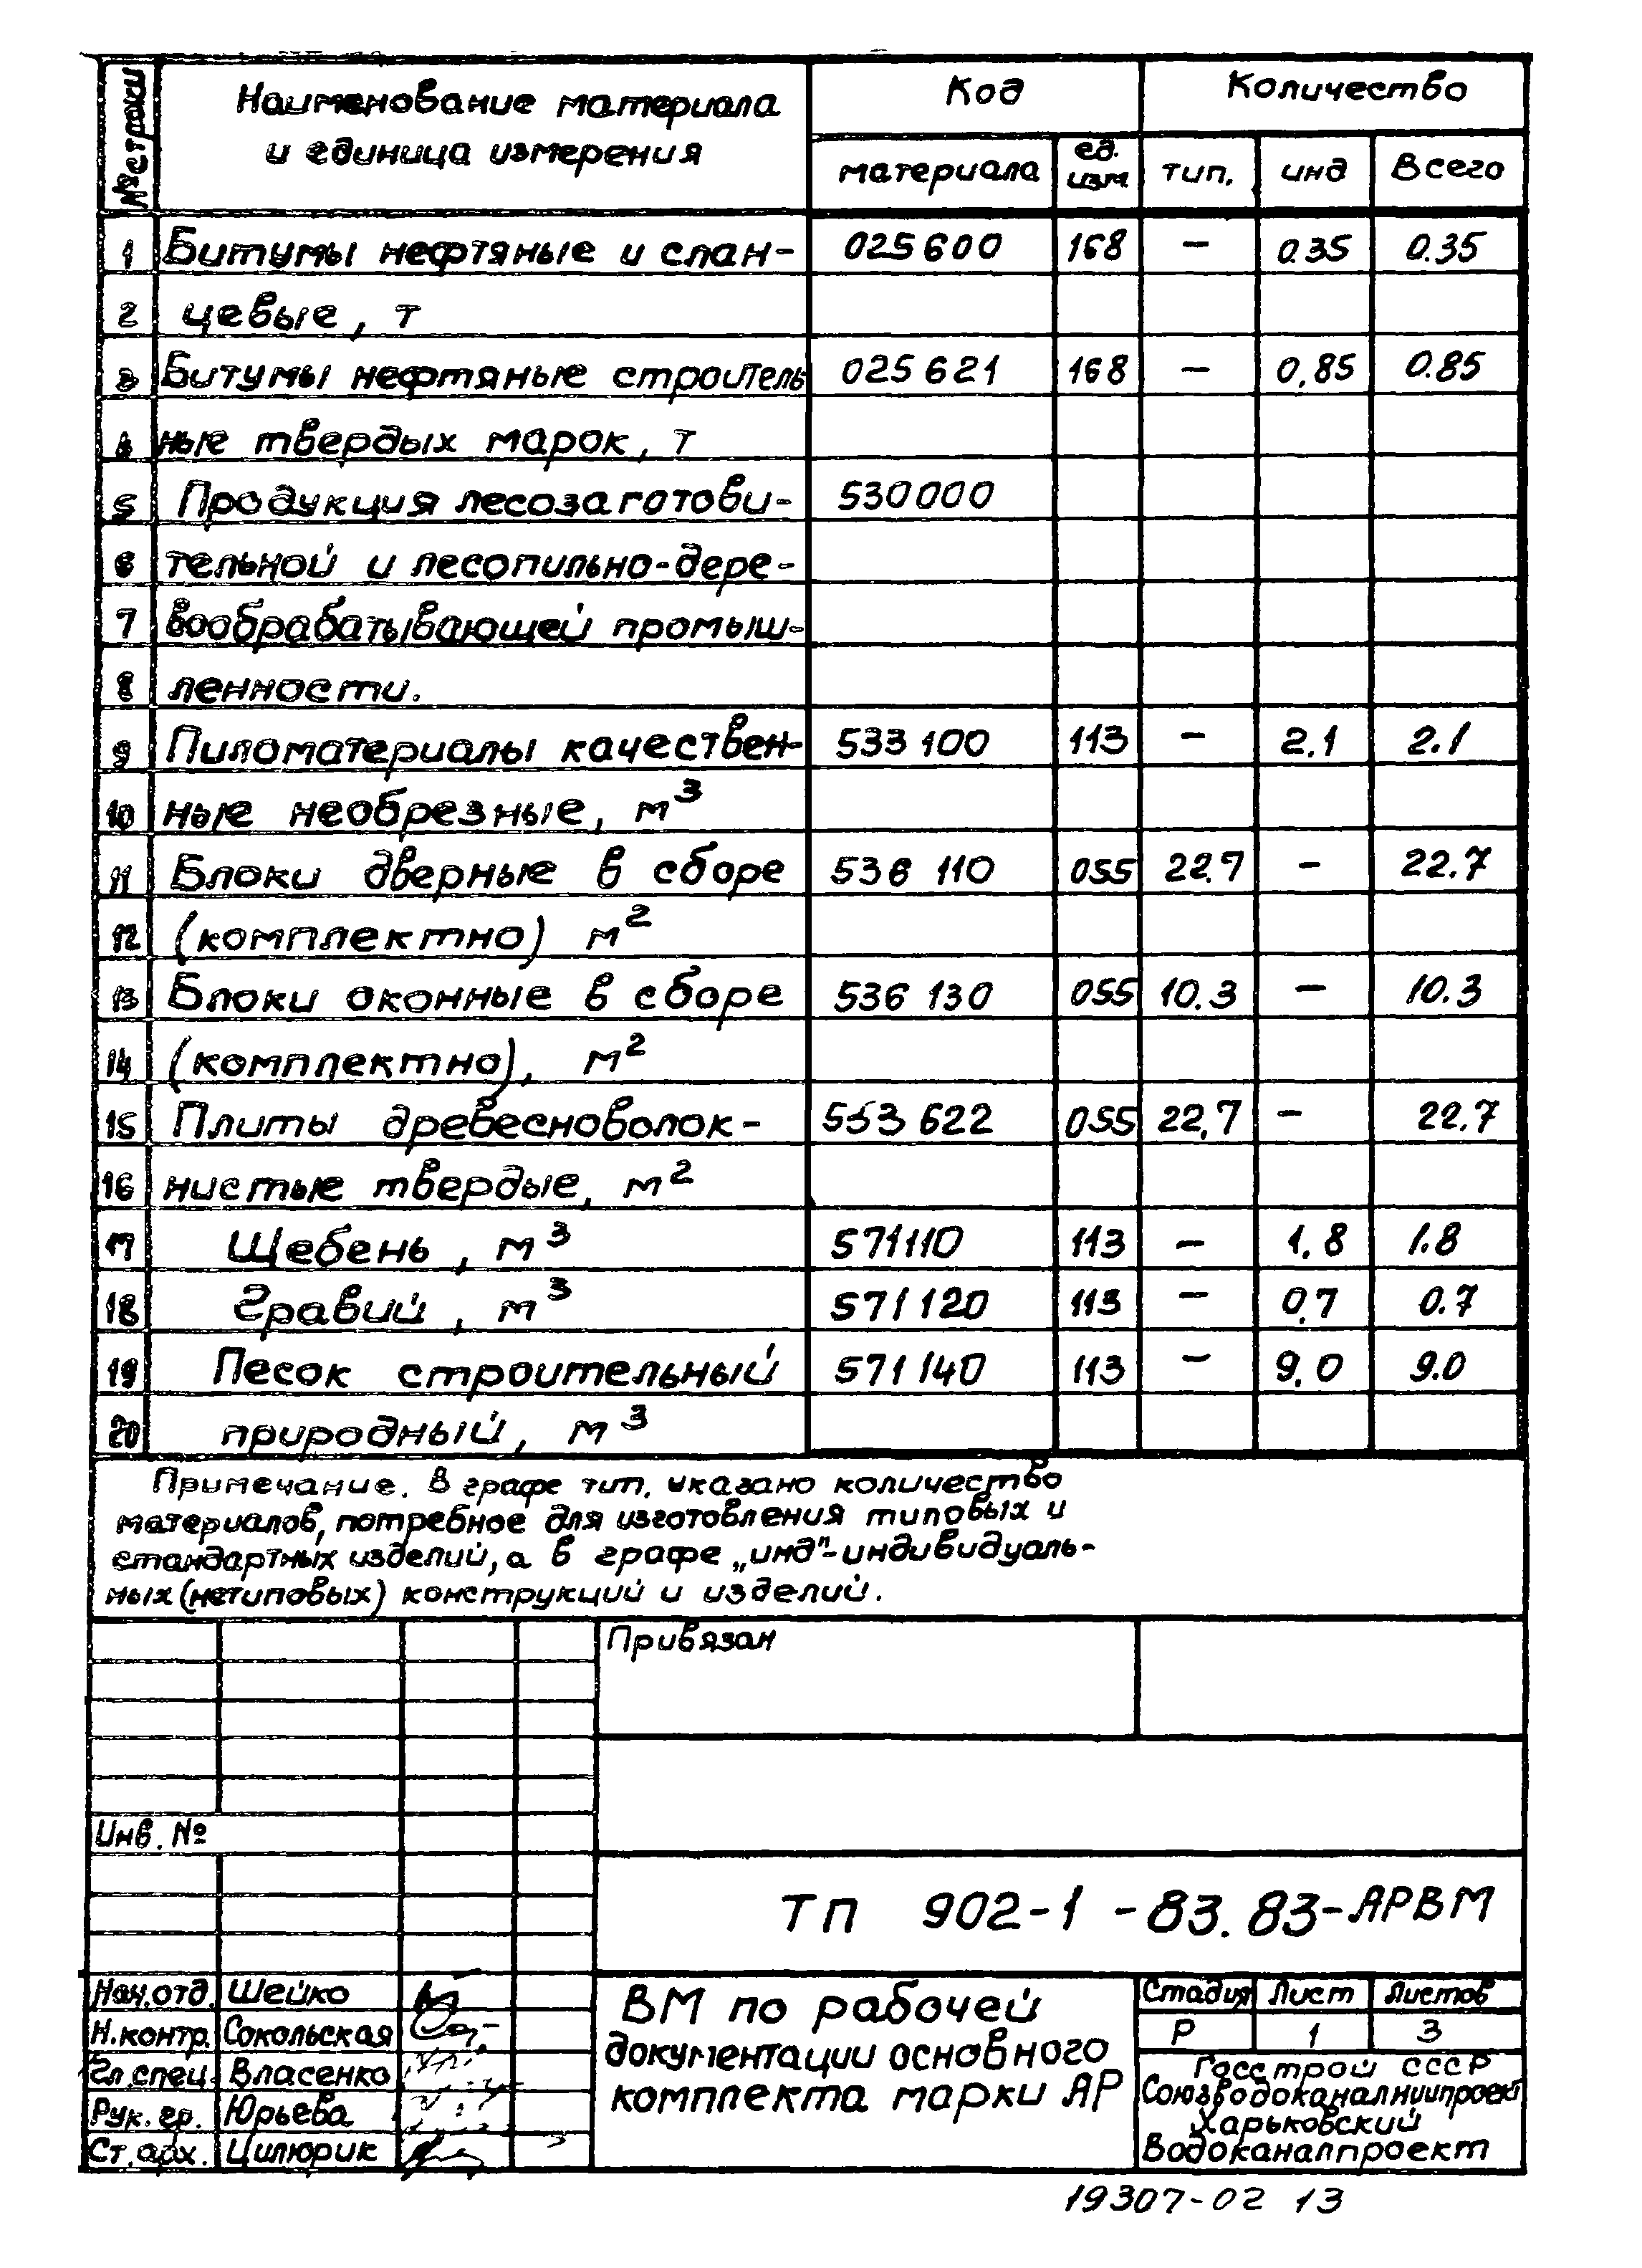 № строки Наименование материала и единица измерения Код Количество
материала ед. изм тип. инд Всего
1 Битумы нефтяные и слан- 025600 168 – 0.35 0.35
2 цевые, т
3 Битумы нефтяные строитель 025621 168 – 0,85 0.85
4 ные твердых марок, т
5 Продукция лесозаготови- 530000
6 тельной и лесопильно-дере-
7 вообрабатывающей промыш-
8 ленности.
9 Пиломатериалы качествен- 533 100 113 – 2,1 2.1
10 ные необрезные, м³
11 Блоки дверные в сборе 536 110 055 22.7 – 22.7
12 (комплектно) м²
13 Блоки оконные в сборе 536 130 055 10.3 – 10.3
14 (комплектно), м²
15 Плиты древесноволок- 553 622 055 22,7 – 22.7
16 нистые твердые, м²
17 Щебень, м³ 571110 113 – 1,8 1.8
18 Гравий, м³ 571120 113 – 0,7 0.7
19 Песок строительный 571140 113 – 9,0 9.0
20 природный, м³
Примечание. В графе тип. указано количество
материалов, потребное для изготовления типовых и
стандартных изделий, а в графе „инд"-индивидуаль-
ных (нетиповых) конструкций и изделий.
Привязан
Инв. №
ТП 902-1-83.83-АРВМ
Нач.отд. Шейко
Н.контр. Сокольская
Гл.спец. Власенко
Рук. гр. Юрьева
Ст. арх. Цилюрик
ВМ по рабочей
документации основного
комплекта марки АР
Стадия Лист Листов
Р 1 3
Госстрой СССР
Союзводоканалниипроект
Харьковский
Водоканалпроект
19307-02 13